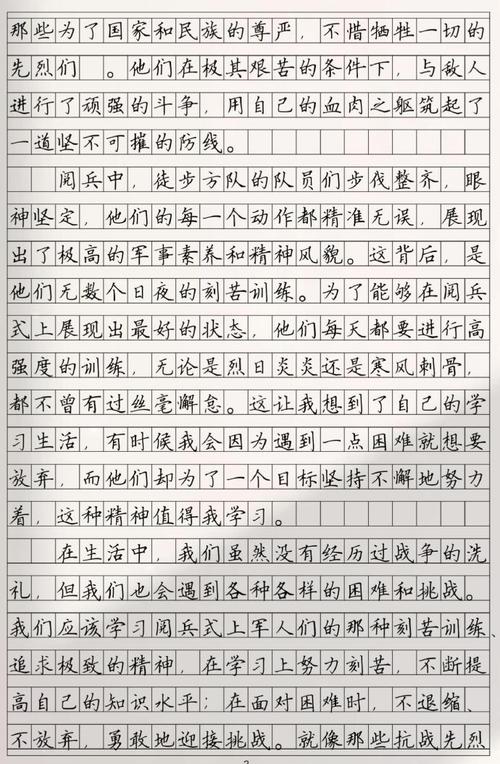 那些为了国家和民族的尊严，不惜牺牲一切的
先烈们　。他们在极其艰苦的条件下，与敌人
进行了顽强的斗争，用自己的血肉之躯筑起了
一道坚不可摧的防线。
阅兵中，徒步方队的队员们步伐整齐，眼
神坚定，他们的每一个动作都精准无误，展现
出了极高的军事素养和精神风貌。这背后，是
他们无数个日夜的刻苦训练。为了能够在阅兵
式上展现出最好的状态，他们每天都要进行高
强度的训练，无论是烈日炎炎还是寒风刺骨，
都不曾有过丝毫懈怠。这让我想到了自己的学
习生活，有时候我会因为遇到一点困难就想要
放弃，而他们却为了一个目标坚持不懈地努力
着，这种精神值得我学习。
在生活中，我们虽然没有经历过战争的洗
礼，但我们也会遇到各种各样的困难和挑战。
我们应该学习阅兵式上军人们的那种刻苦训练、
追求极致的精神，在学习上努力刻苦，不断提
高自己的知识水平；在面对困难时，不退缩、
不放弃，勇敢地迎接挑战。就像那些抗战先烈
2